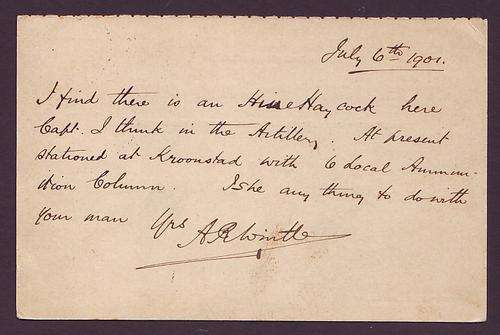 July 6th 1901.
I find there is an Hine Haycock here
Capt. I think in the Artillery. At present
stationed at Kroonstad with 6 Local Ammun-
ition Column. Is he any thing to do with
your man Yrs
A R Wintle